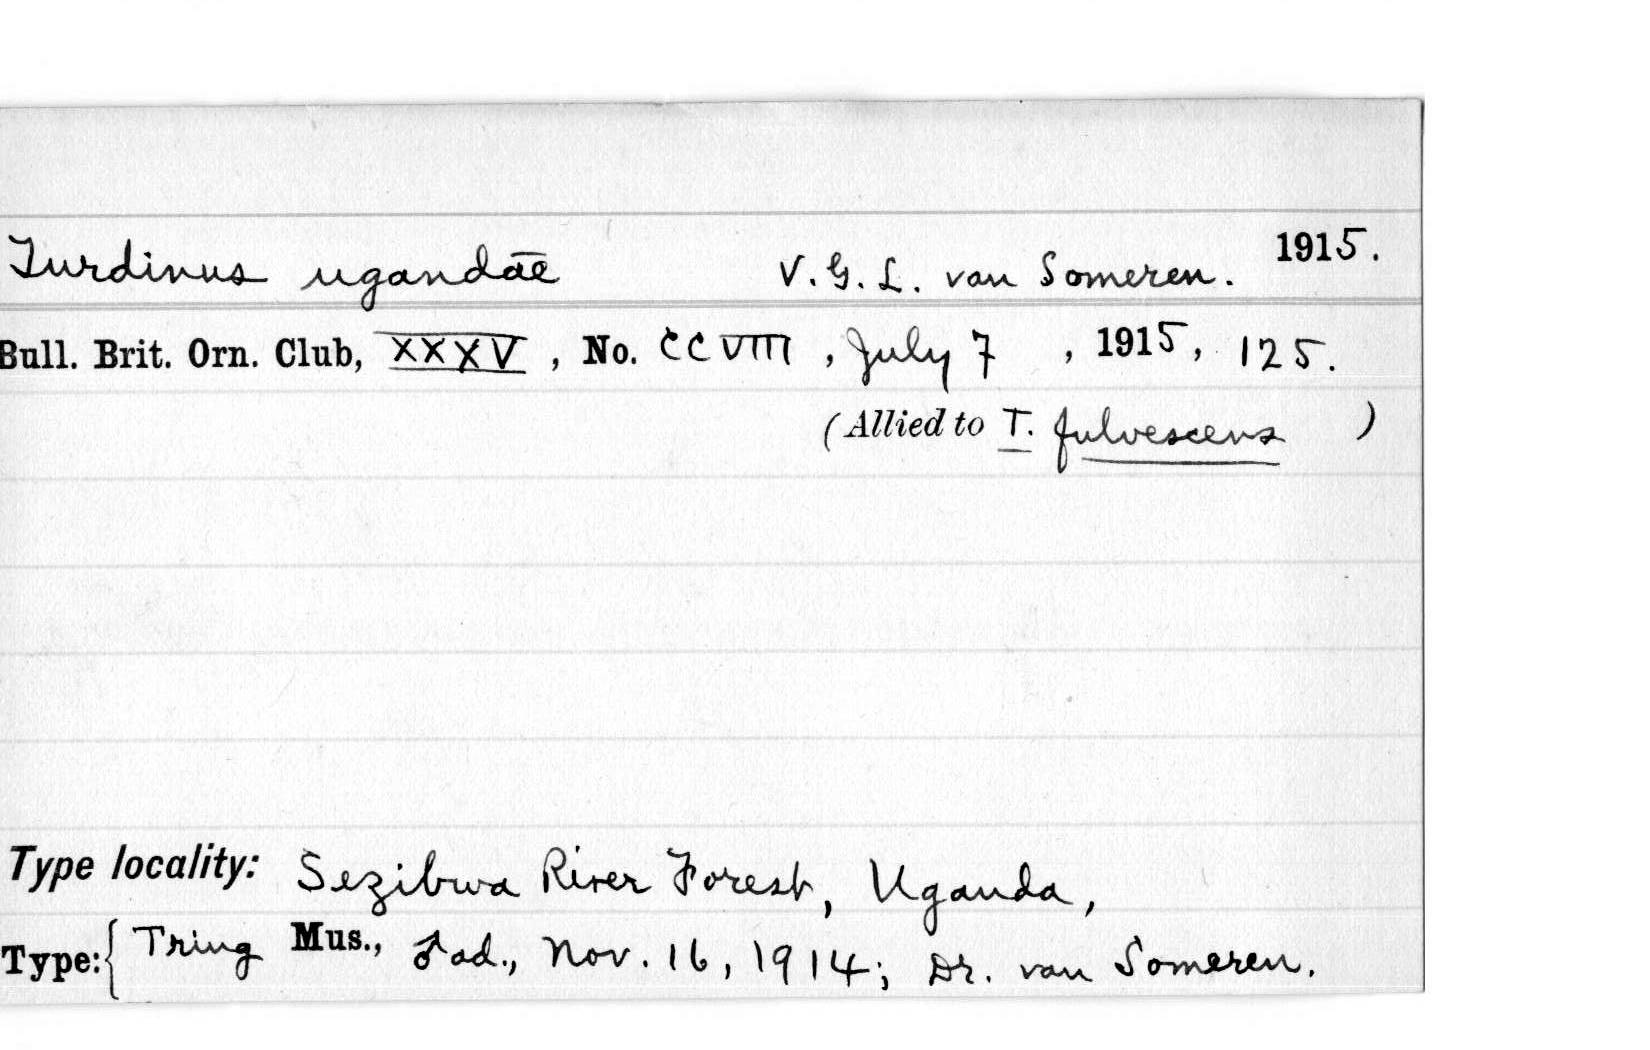 Turdinus ugandae V. G. L. van Someren. 1915.
Bull. Brit. Orn. Club, XXXV, No. CCVIII, July 7, 1915, 125.
(Allied to T. fulvescens)
Type locality: Sezibwa River Forest, Uganda,
Type: { Tring Mus., ♂ ad., Nov. 16, 1914; Dr. van Someren.